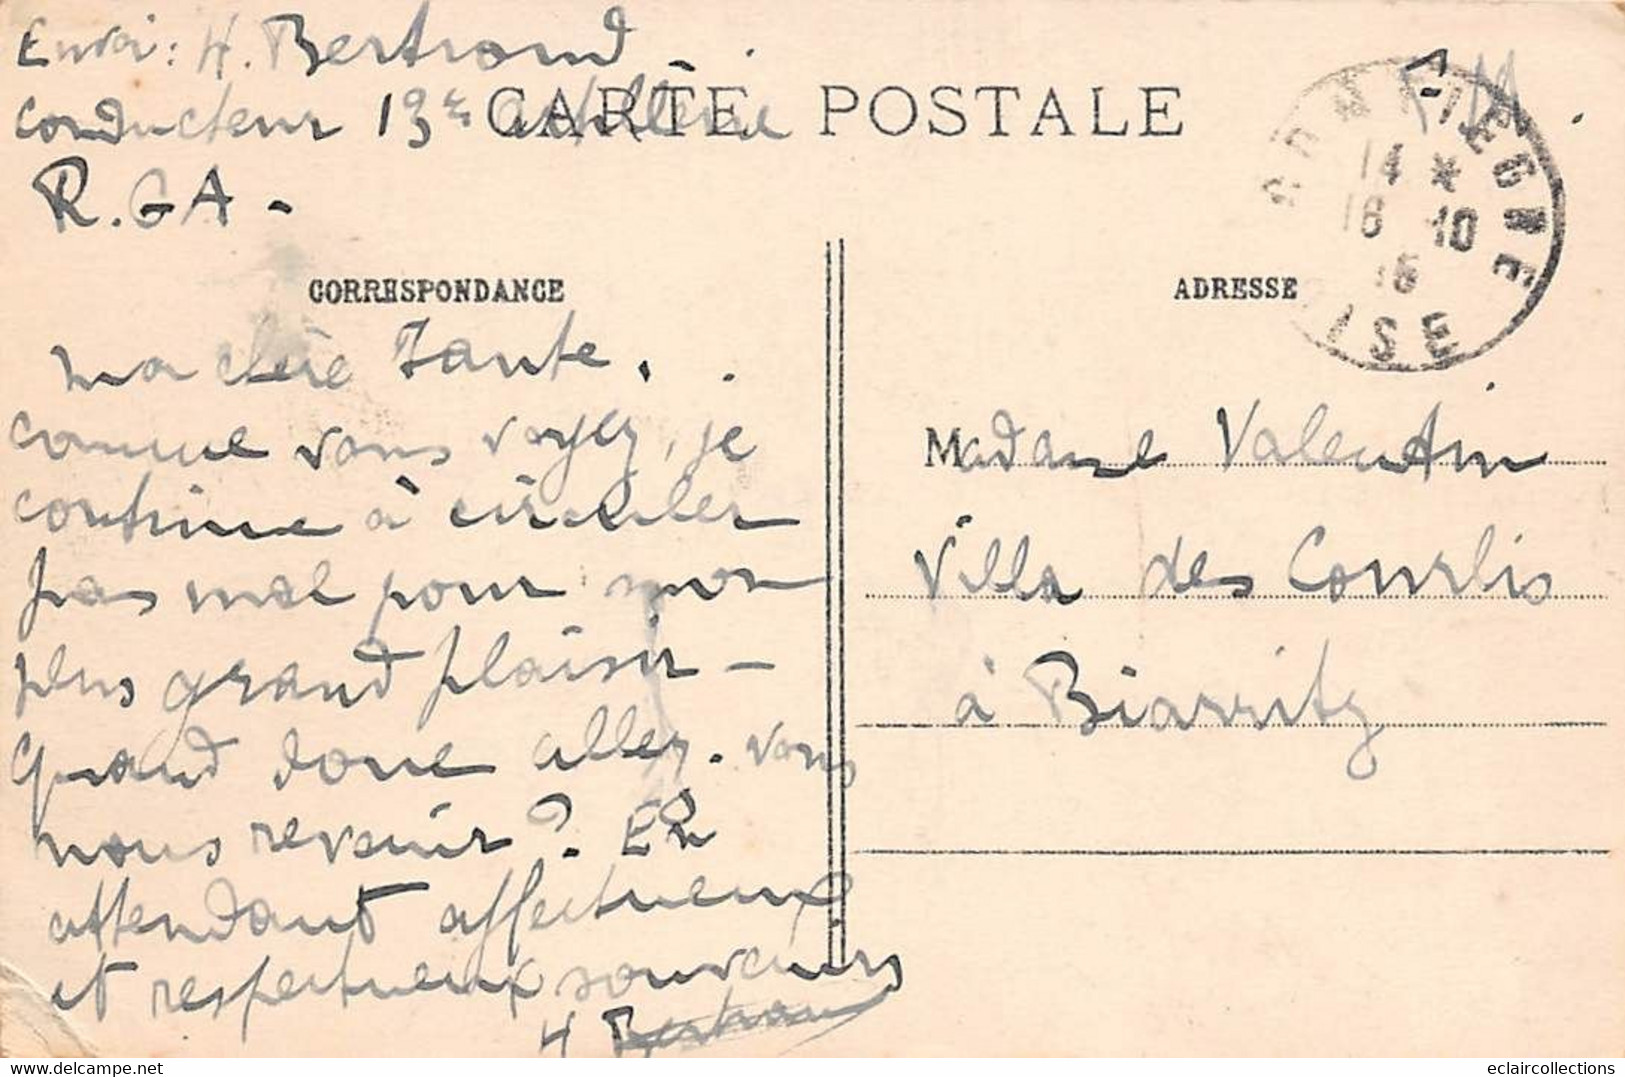 Envoi : H. Bertrand
CARTE POSTALE
conducteur 13me artillerie
R.G.A -
COMPIEGNE
14 *
16 10
15
OISE
CORRESPONDANCE
ADRESSE
Ma chère Tante,
comme vous voyez, je
continue à circuler
pas mal pour mon
plus grand plaisir -
Quand donc allez-vous
nous revenir ? En
attendant affectueux
et respectueux souvenirs
H Bertrand
Madame Valentin
Villa des Courlis
à Biarritz
En vente sur Delcampe
eclaircollections